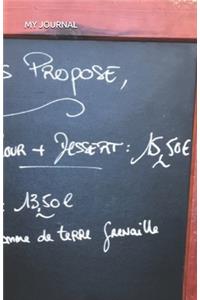 MY JOURNAL
S PROPOSE,
JOUR + DESSERT : 15,50€
: 13,50€
omme de terre Grenaille